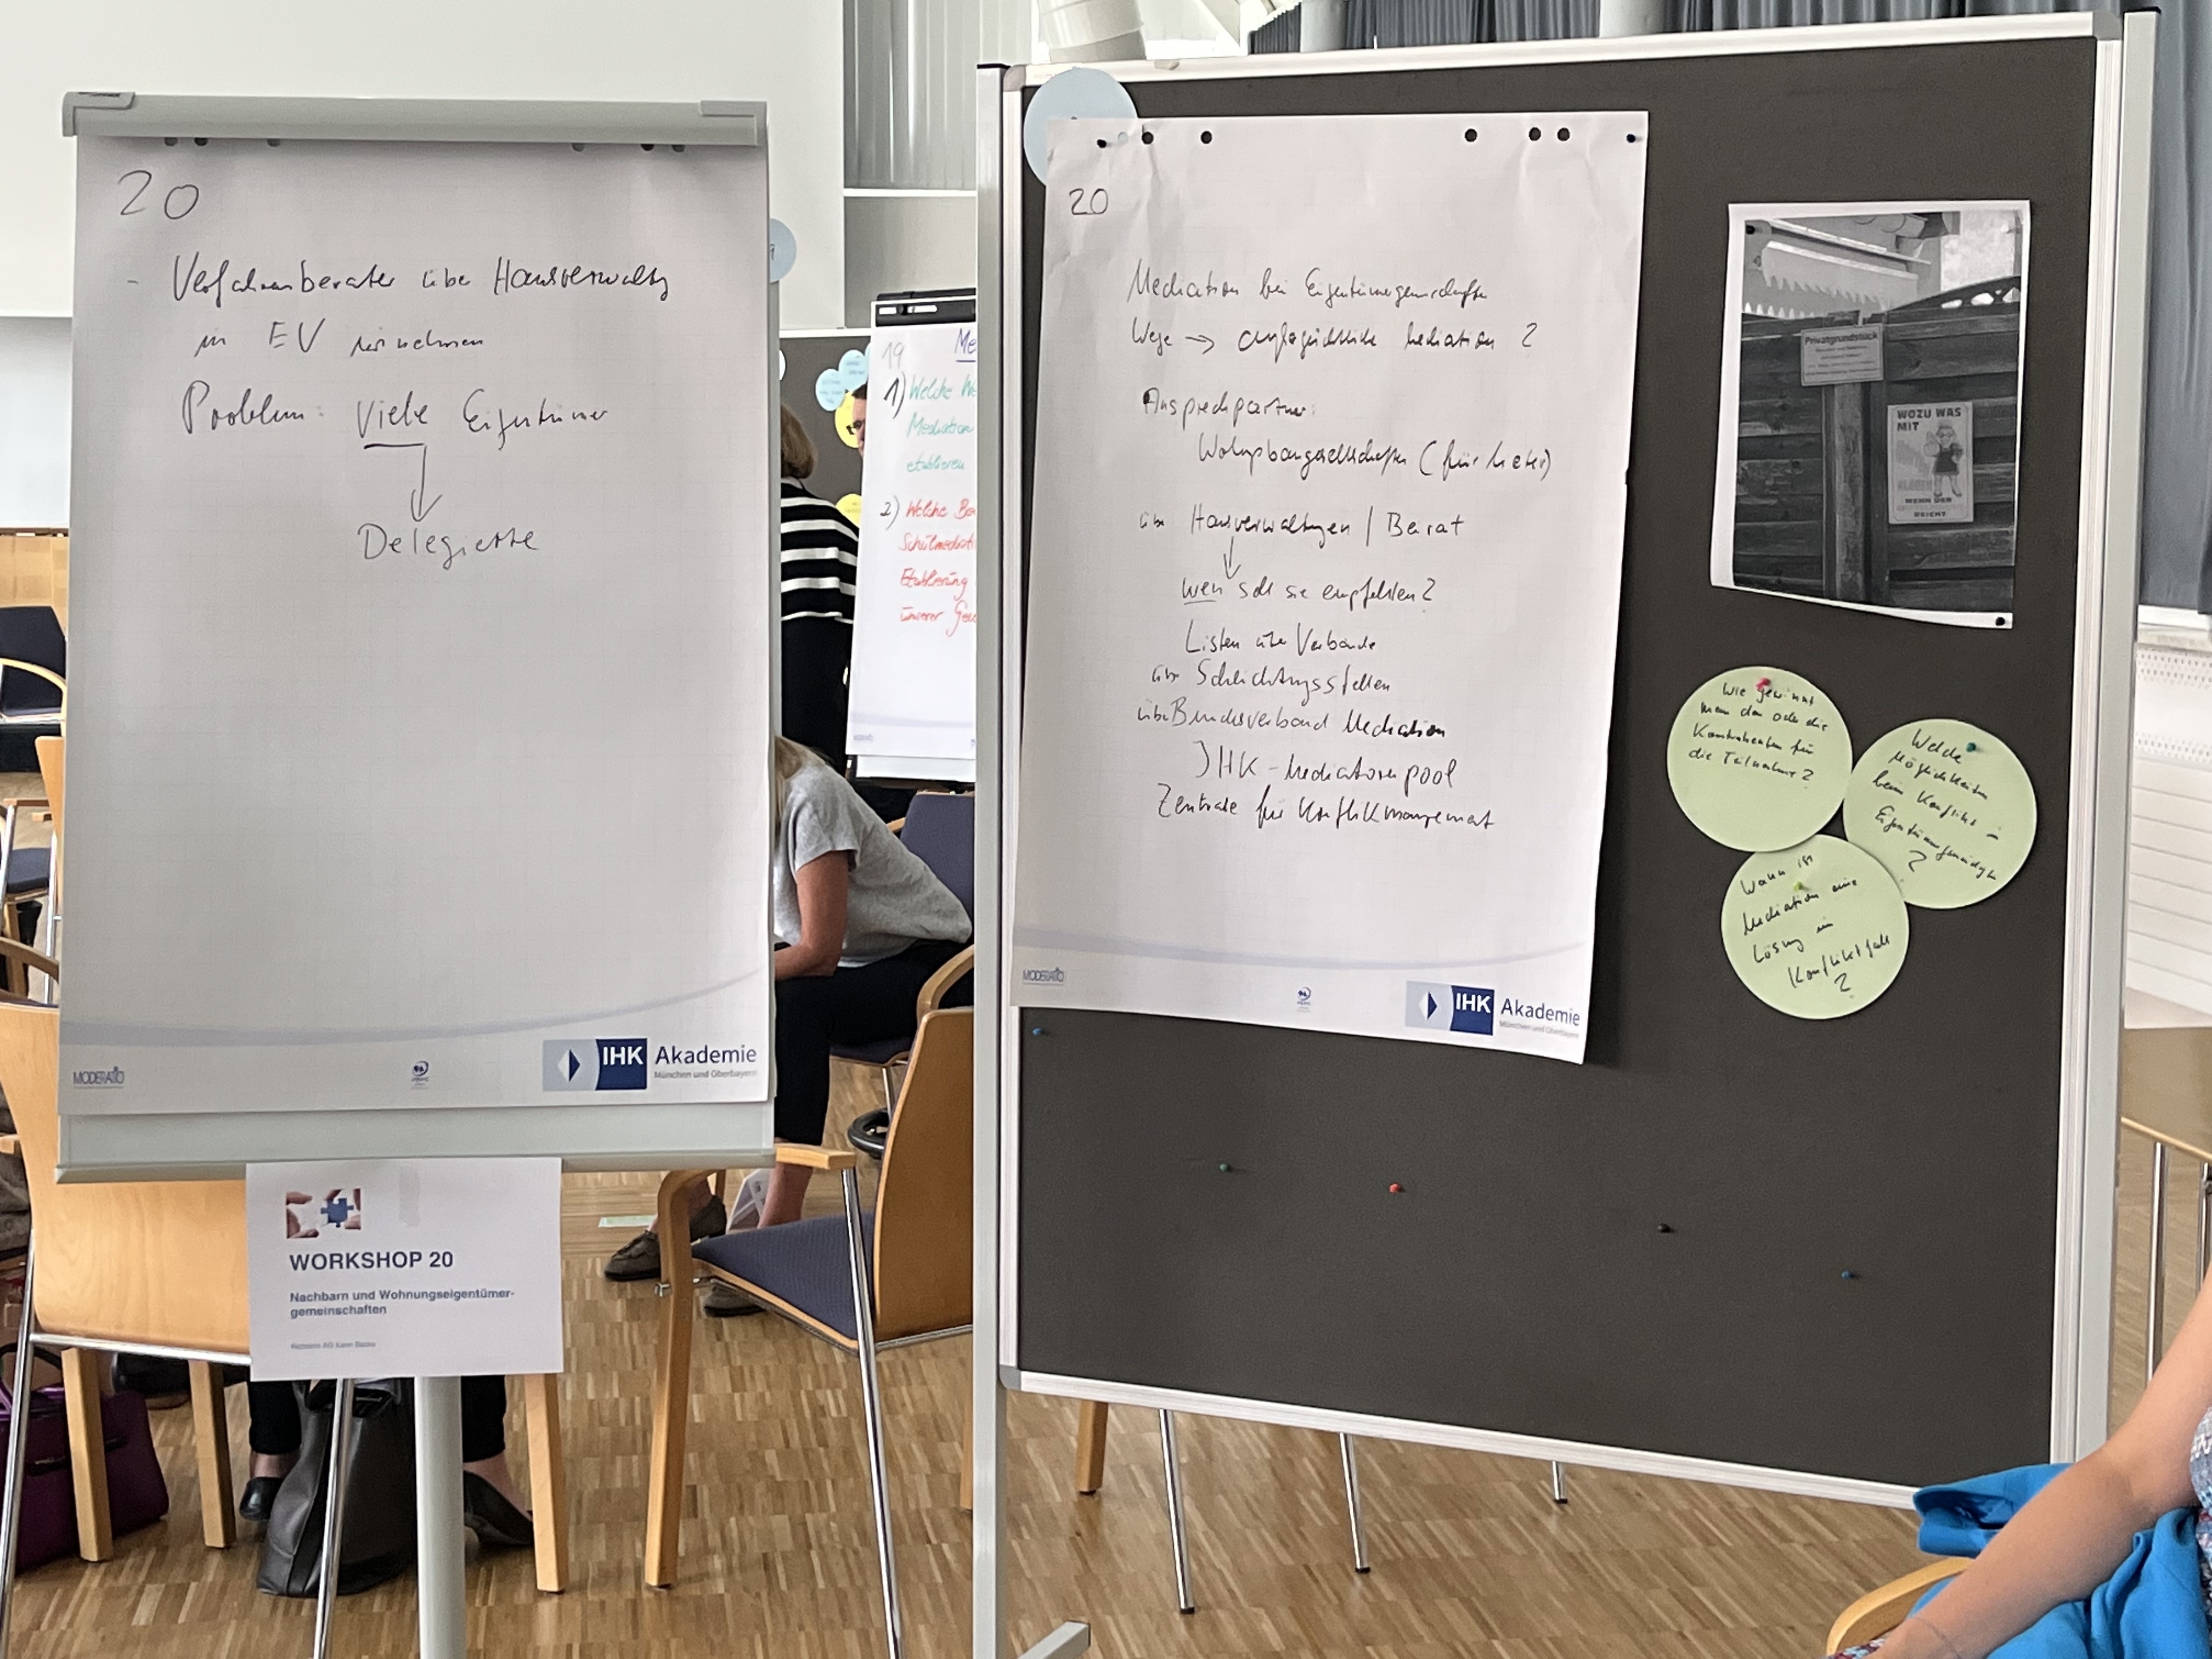 20
- Verfahrensberater über Hausverwaltg
in EV mitnehmen
Problem: Viele Eigentümer
Delegierte
MODERATIO
IHK Akademie
München und Oberbayern
WORKSHOP 20
Nachbarn und Wohnungseigentümer-
gemeinschaften
19
Me
1) Welche We
Mediation
etablieren
2) Welche Be
Schulmediati
Etablierung
unserer Ges
20
Mediation bei Eigentümergemeinschaften
Wege → außergerichtliche Mediation ?
Ansprechpartner:
Wohnungsbaugesellschaften (für Mieter)
über Hausverwaltungen / Beirat
wen soll sie empfehlen?
Listen über Verbände
über Schlichtungsstellen
über Bundesverband Mediation
IHK-Mediatorenpool
Zentrale für Konfliktmanagement
MODERATIO
IHK Akademie
München und Oberbayern
Privatgrundstück
WOZU WAS
MIT
KLÄREN
WENN DER
REICHT
Wie gewinnt
man den oder die
Kontrahenten für
die Teilnahme?
Welche
Möglichkeiten
beim Konflikt in
?
Wann ist
Mediation eine
Lösung im
Konfliktfall
?